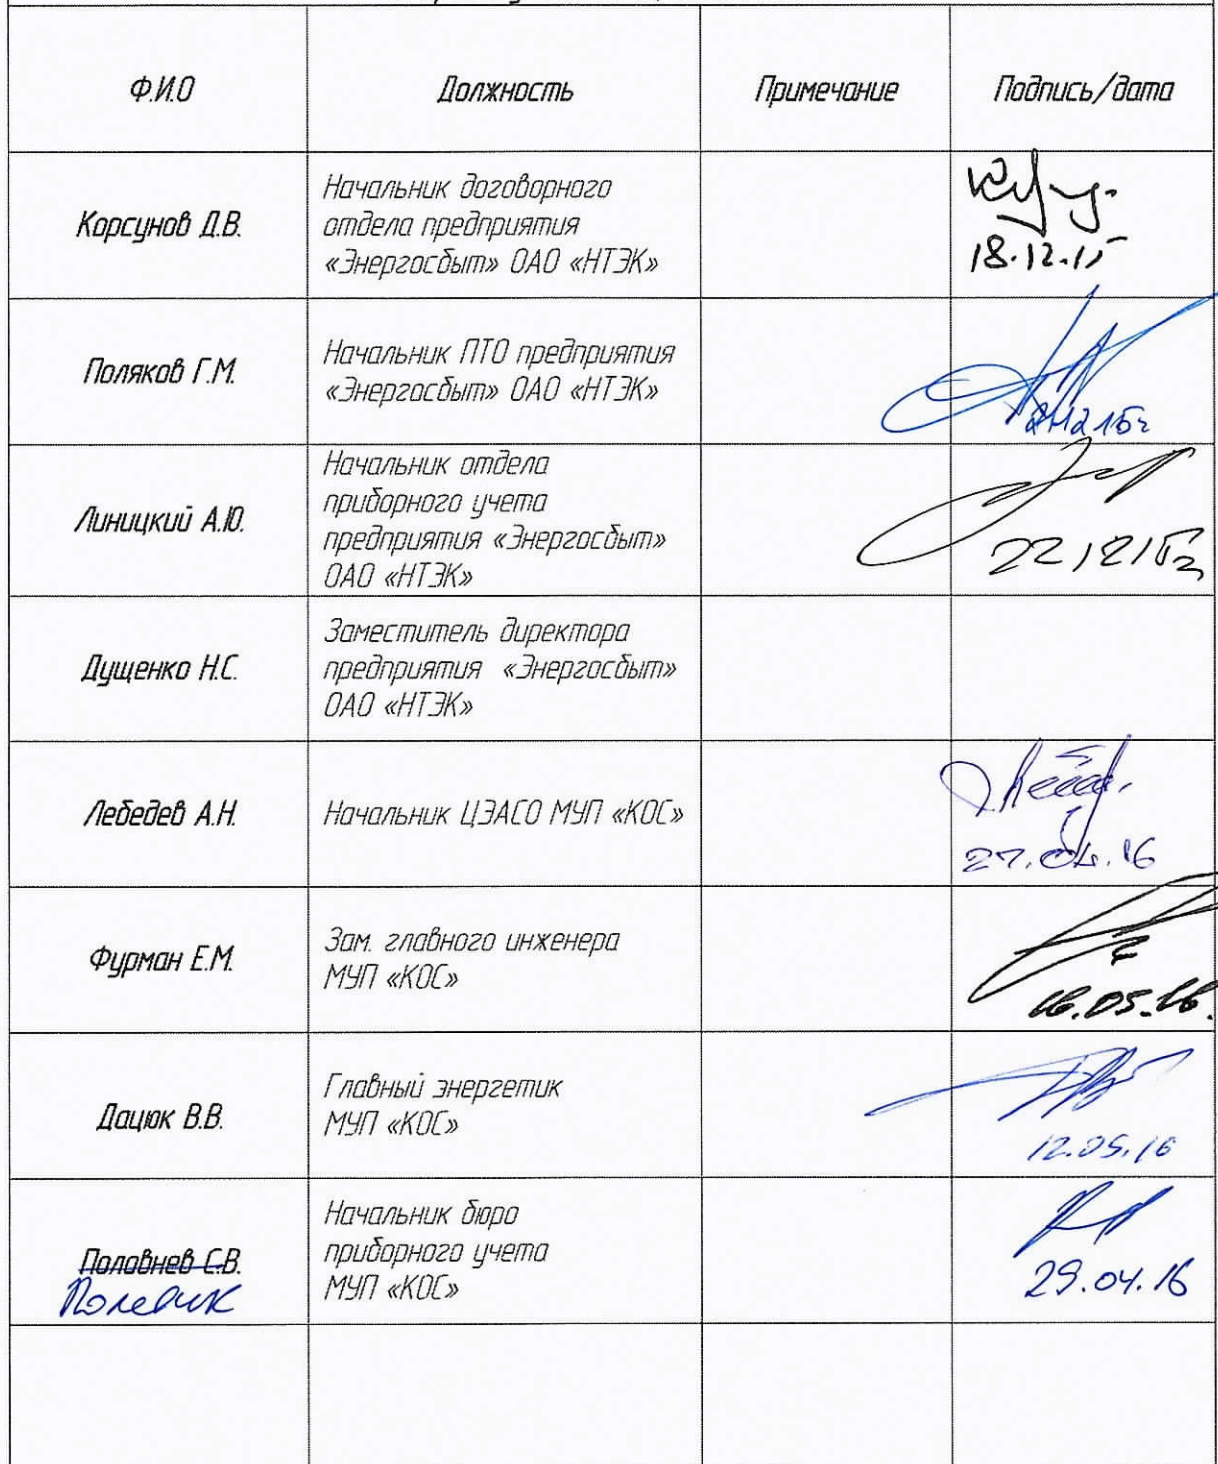 Ф.И.О Должность Примечание Подпись/дата
Корсунов Д.В.
Начальник договорного
отдела предприятия
«Энергосбыт» ОАО «НТЭК»
18.12.15
Поляков Г.М.
Начальник ПТО предприятия
«Энергосбыт» ОАО «НТЭК»
Линицкий А.Ю.
Начальник отдела
приборного учета
предприятия «Энергосбыт»
ОАО «НТЭК»
221215г
Дущенко Н.С.
Заместитель директора
предприятия «Энергосбыт»
ОАО «НТЭК»
Лебедев А.Н.
Начальник ЦЭАСО МУП «КОС»
27.04.16
Фурман Е.М.
Зам. главного инженера
МУП «КОС»
16.05.16.
Дацюк В.В.
Главный энергетик
МУП «КОС»
12.05.16
Половнев С.В.
Полевик
Начальник бюро
приборного учета
МУП «КОС»
29.04.16